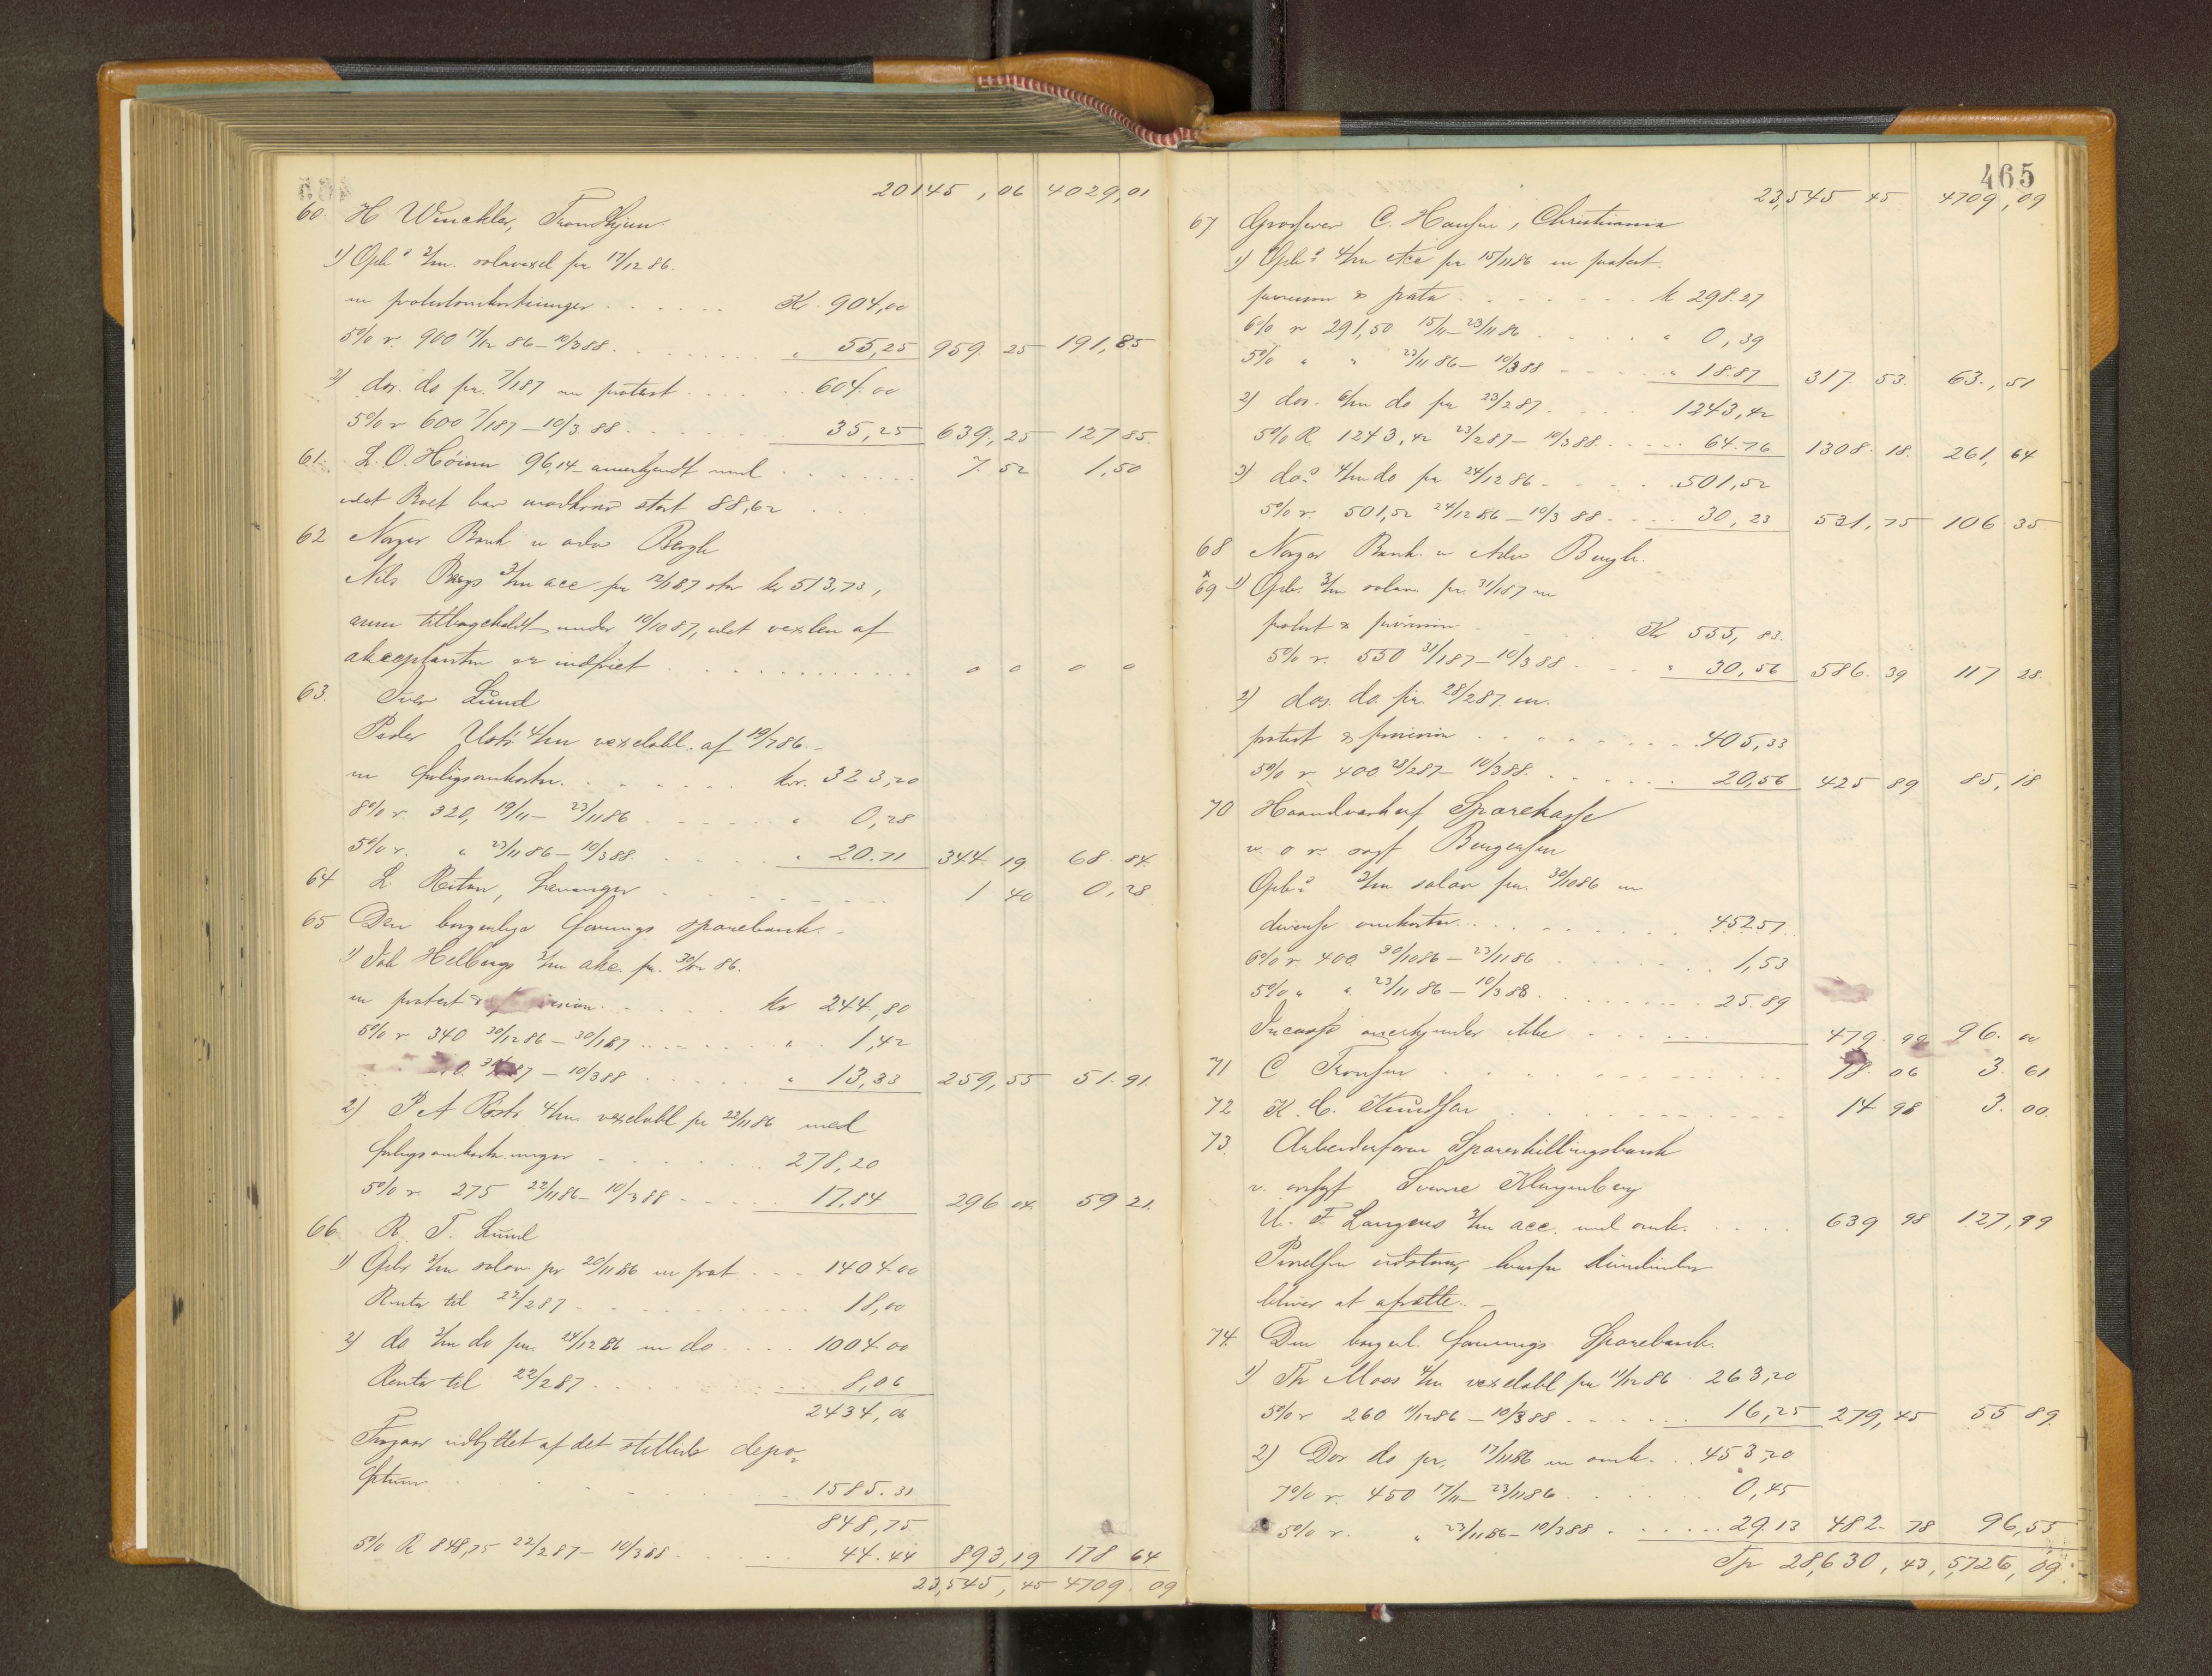 20145,06 4029,01
60. H Winckler, Trondhjem.
1) Opb's 3/m. solavexel pr 17/12 86.
m protestomkostninger . . . Kr. 904,00
5% r. 900 17/12 86 – 10/3 88 . . . " 55,25 959 25 191,85
2) dos. do pr. 7/1 87 m protest . . . 604.00
5% r 600 7/1 87 – 10/3 88 . . . 35,25 639,25 127 85.
61. L. O. Höinn 96,14 anerkjendt med . . . 7. 52 1,50
idet Boet har modkrav stort 88,62
62 Norges Bank v adv Bergh
Nils Bergs 3/m acc pr 12/1 87 stor kr 513,73,
anm tilbageholdt under 10/10 87, idet vexlen af
akceptanten er indfriet . . . 0 0 0 0
63. Iver Lund
Peder 4/m vexelobl. af 19/7 86.
m følgeomkostn. . . . kr. 323,20
8% r. 320, 19/11 – 23/11 86 . . . " 0,28
5% r. " 23/11 86 – 10/3 88. . . . " 20.71 344. 19 68. 84.
64 L. Reitan, Levanger . . . 1 40 0,28
65 Den borgerlige forenings sparebank.
1) Joh Helbergs 3/m akc. pr. 30/12 86.
m protest & . . . kr 244,80
6% r. 340 30/12 86 – 30/1 87 . . . " 1,42
87 – 10/3 88 . . . " 13,33 259,55 51. 91.
2) P A 4/m. vexelobl pr 22/11 86 med
følgeomkostninger . . . 278,20
5% r. 275 22/11 86 – 10/3 88 . . . 17,84 296 04. 59 21.
66. R. T. Lund
1) Opbs 3/m solav pr 20/11 86 m prot . . . 1404.00
Renter til 22/2 87 . . . 18,00
2) do 3/m do pr. 24/12 86 m do . . . 1004.00
Renter til 22/2 87 . . . 8,06
2434,06
Fragaar udbyttet af det stillede depo-
situm . . . 1585.31
848,75
5% R 848,75 22/2 87 – 10/3 88 . . . 44.44 893,19 178 64
23,545,45 4709. 09
465
23,545 45 4709,09
67 Grosserer C. Hansen, Christiania
1) Opb's 4/m acc pr 15/11 86 m protest.
provision & porto . . . k 298.27
6% r 291,50 15/11 – 23/11 86 . . . " 0,39
5% " " 23/11 86 – 10/3 88 . . . " 18.87 317. 53. 63.,51
2) dos. 6/m do pr 23/2 87. . . . 1243,42
5% R. 1243,42 23/2 87 – 10/3 88 . . . 64.76 1308. 18. 261,64
3) dos 4/m do pr 24/12 86 . . . 501,52
5% r. 501,52 24/12 86 – 10/3 88 . . . 30,23 531,75 106 35
68 Norges Bank. v Adv Bergh.
x
69 1) Opbs. 3/m solav. pr. 31/1 87 m
protest & provision . . . Kr 555,83.
5% r. 550 31/1 87 – 10/3 88 . . . " 30,56 586. 39 117 28.
2) dos. do. pr. 28/2 87. m.
protest & provision . . . 405,33
5% r. 400. 28/2 87 – 10/3 88. . . . 20,56 425 89 85,18
70 Haandværkerf Sparekasse
v. o r. sagf Bergersen
Opb's 3/m solav pr. 30/10 86 m
diverse omkostn. . . . 452 57
6% r. 400 30/10 86 – 23/11 86 . . . 1,53
5% " " 23/11 86 – 10/3 88 . . . 25.89
Incasso anerkjendes ikke . . . 479. 99 96. 00
71 C Tronsen . . . 18. 06 3. 61.
72 K. C. Knudsen . . . 14 98 3. 00.
73. Arbeiderforen Spareskillingsbank
v. ovrsgf Sverre Klingenberg
U. F. Langens 3/m acc. med omk. . . . 639 98 127,99
bliver at afsætte. –
74. Den borgerl. forenings Sparebank.
1) Th Moes 4/m vexelobl pr 11/12 86 263,20
5% r 260 11/12 86 – 10/3 88 . . . 16,25 279,45 55 89.
2) Dos do pr. 17/11 86 m omk. . . 453,20
7% r. 450 17/11 – 23/11 86 . . . 0,45
5% r. " 23/11 86 – 10/3 88 . . . 29.13 482. 78 96,55
Tr 28,630,43, 5,726,09.